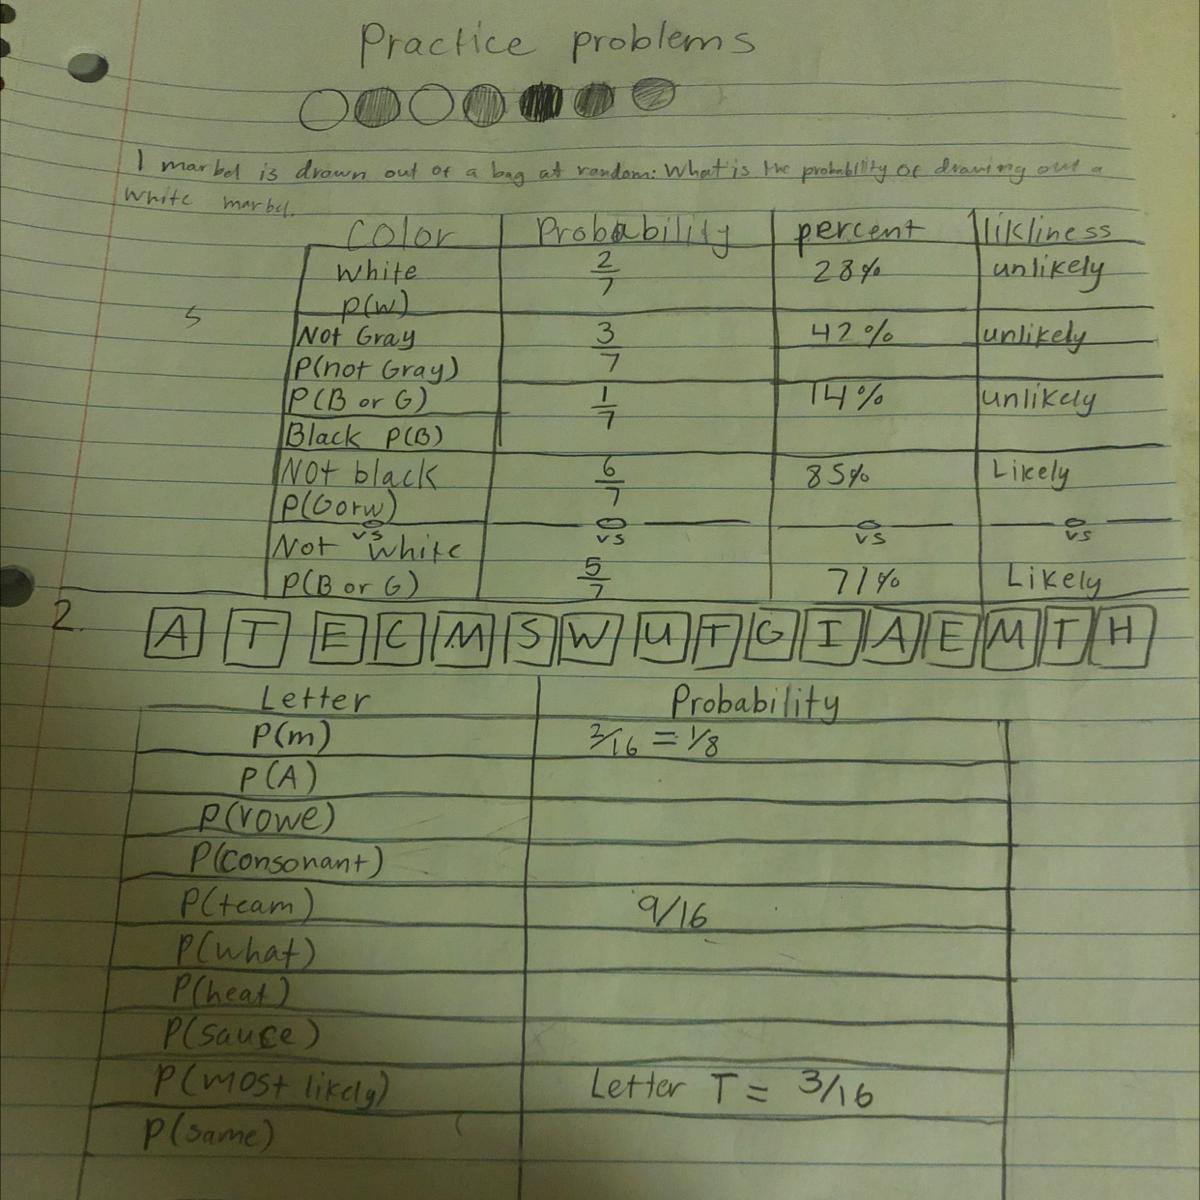 Practice problems
1 marbel is drown out of a bag at random: What is the probability of drawing out a
white marbel.
Color Probability percent likliness
White 2/7 28% unlikely
P(W)
Not Gray 3/7 42% unlikely
P(not Gray)
P(B or G) 1/7 14% unlikely
Black P(B)
Not black 6/7 85% Likely
P(G or w)
vs vs vs vs
Not White
P(B or G) 5/7 71% Likely
2. A T E C M S W U T G I A E M T H
Letter Probability
P(m) 2/16 = 1/8
P(A)
P(vowe)
P(consonant)
P(team) 9/16
P(what)
P(heat)
P(sauce)
P(most likely) Letter T = 3/16
P(same)